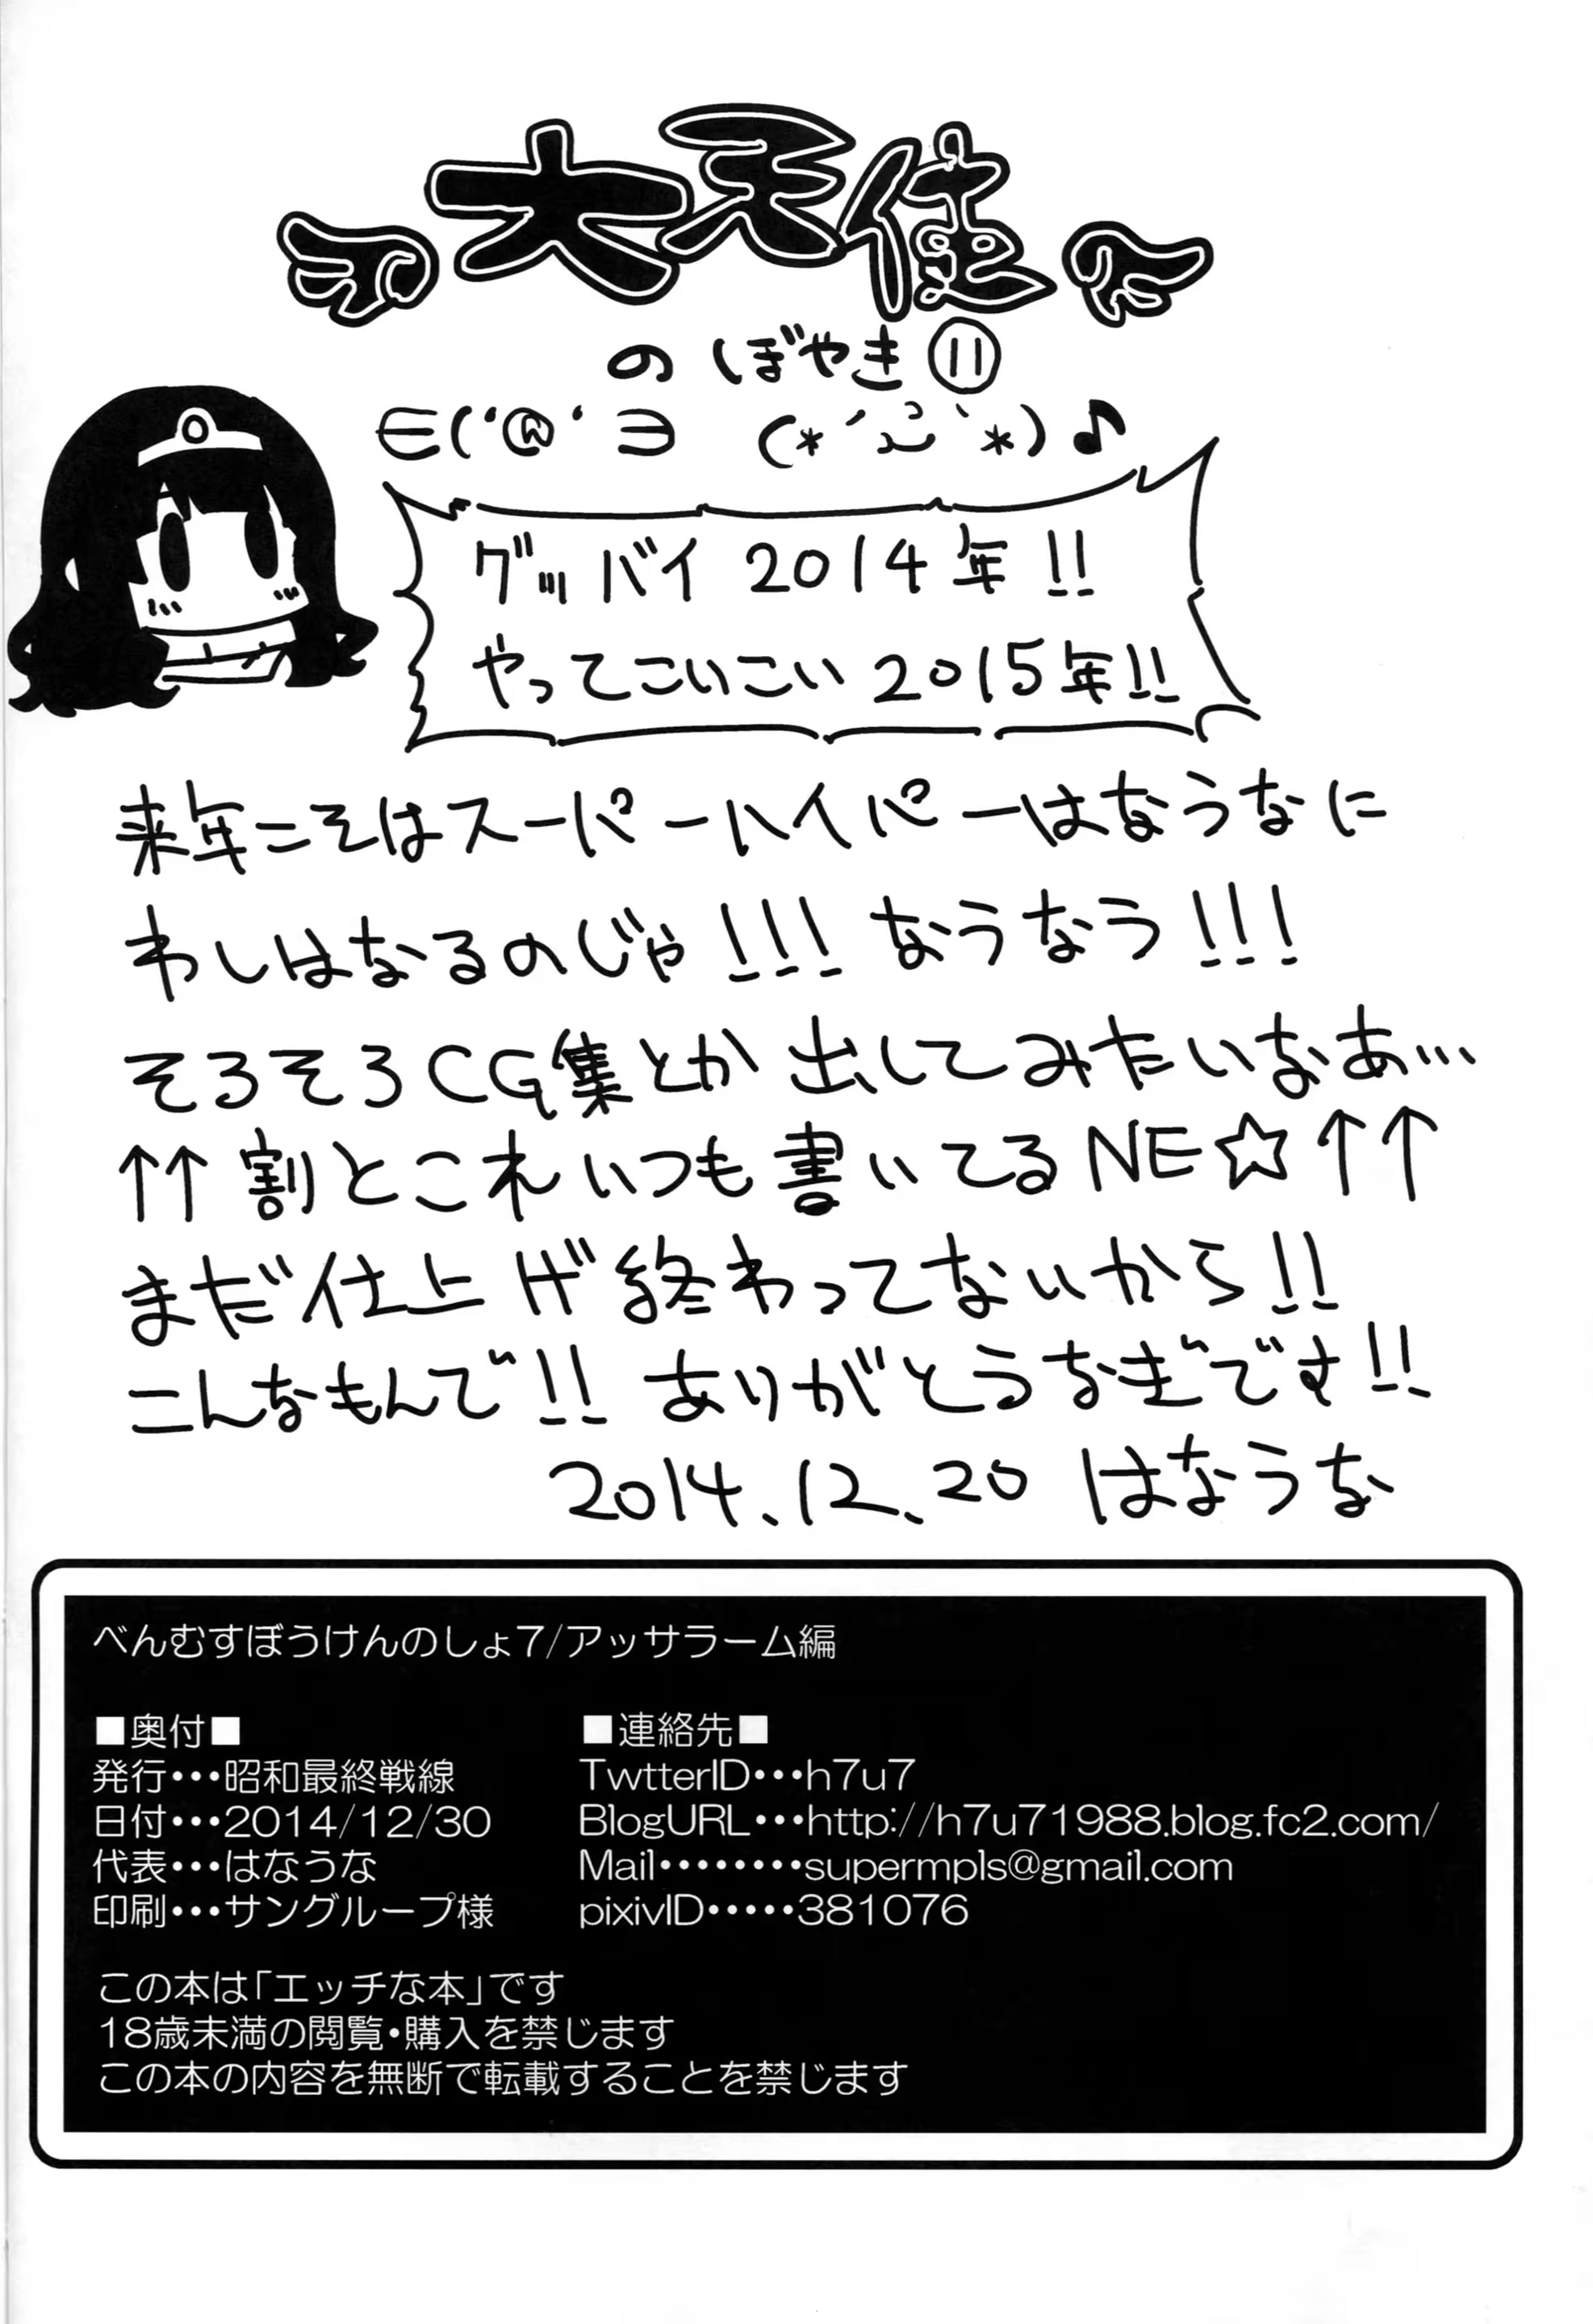 大天使
のぼやき⑪
∈(‘@‘ ∋ (*´ω`*)♪
グッバイ 2014年!!
やってこいこい 2015年!!
来年こそはスーパーハイパーはなうなに
わしはなるのじゃ!!! なうなう!!!
そろそろCG集とか出してみたいなあ…
↑↑割とこれいつも書いてるNE☆↑↑
まだ仕上げ終わってないから!!
こんなもんで!! ありがとうなぎです!!
2014.12.20 はなうな
べんむすぼうけんのしょ7/アッサラーム編
■奥付■
発行・・・昭和最終戦線
日付・・・2014/12/30
代表・・・はなうな
印刷・・・サングループ様
■連絡先■
TwtterID・・・h7u7
BlogURL・・・http://h7u71988.blog.fc2.com/
Mail・・・・・・・・supermpls@gmail.com
pixivID・・・・・381076
この本は「エッチな本」です
18歳未満の閲覧・購入を禁じます
この本の内容を無断で転載することを禁じます